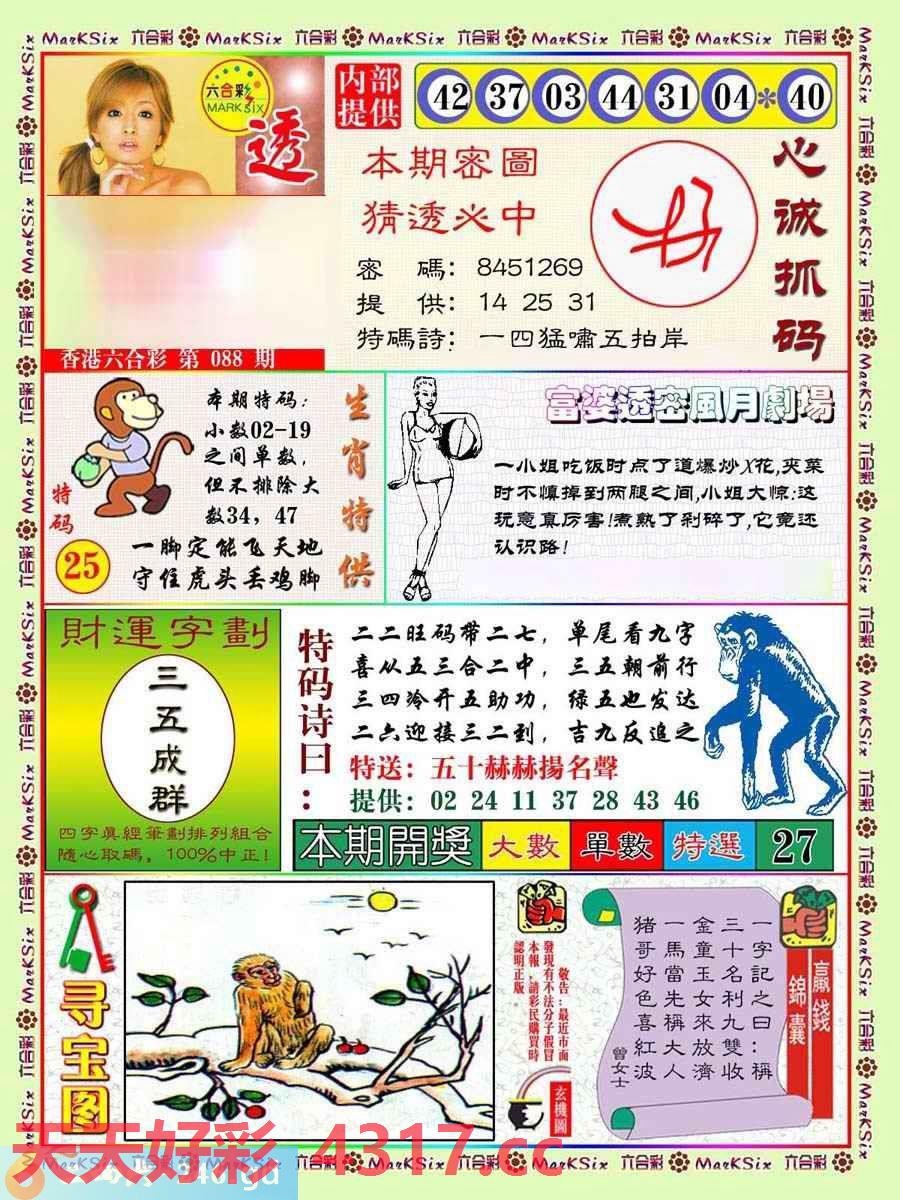 MarKSix 六合彩 MarKSix 六合彩 MarKSix 六合彩 MarKSix 六合彩 MarKSix 六合彩
六合彩
MARK SIX
透
内部
提供
42 37 03 44 31 04 * 40
本期密圖
猜透必中
密 碼: 8451269
提 供: 14 25 31
特碼詩: 一四猛嘯五拍岸
心诚抓码
香港六合彩 第 088 期
特码
25
本期特码:
小数02-19
之间单数,
但不排除大
数34, 47
一脚定能飞天地
守住虎头丢鸡脚
生肖特供
富婆透密風月劇場
一小姐吃饭时点了道爆炒X花,夹菜
时不慎掉到两腿之间,小姐大惊:这
玩意真厉害!煮熟了剁碎了,它竟还
认识路!
財運字劃
三五成群
四字真經筆劃排列組合
隨心取碼, 100%中正!
特码诗曰:
二二旺码带二七, 单尾看九字
喜从五三合二中, 三五朝前行
三四冷开五助功, 绿五也发达
二六迎接三二到, 吉九反追之
特送: 五十赫赫揚名聲
提供: 02 24 11 37 28 43 46
本期開獎 大數 單數 特選 27
寻宝图
敬告:最近市面
發現有不法分子假冒
本報,請彩民購買時
認明正版。
玄機圖
贏錢
錦囊
一字記之曰:稱
三十名利九雙收
金童玉女來放濟
一馬當先稱大人
猪哥好色喜紅波
曾女士
天天好彩 4317.cc
MarKSix 六合彩 MarKSix 六合彩 MarKSix 六合彩